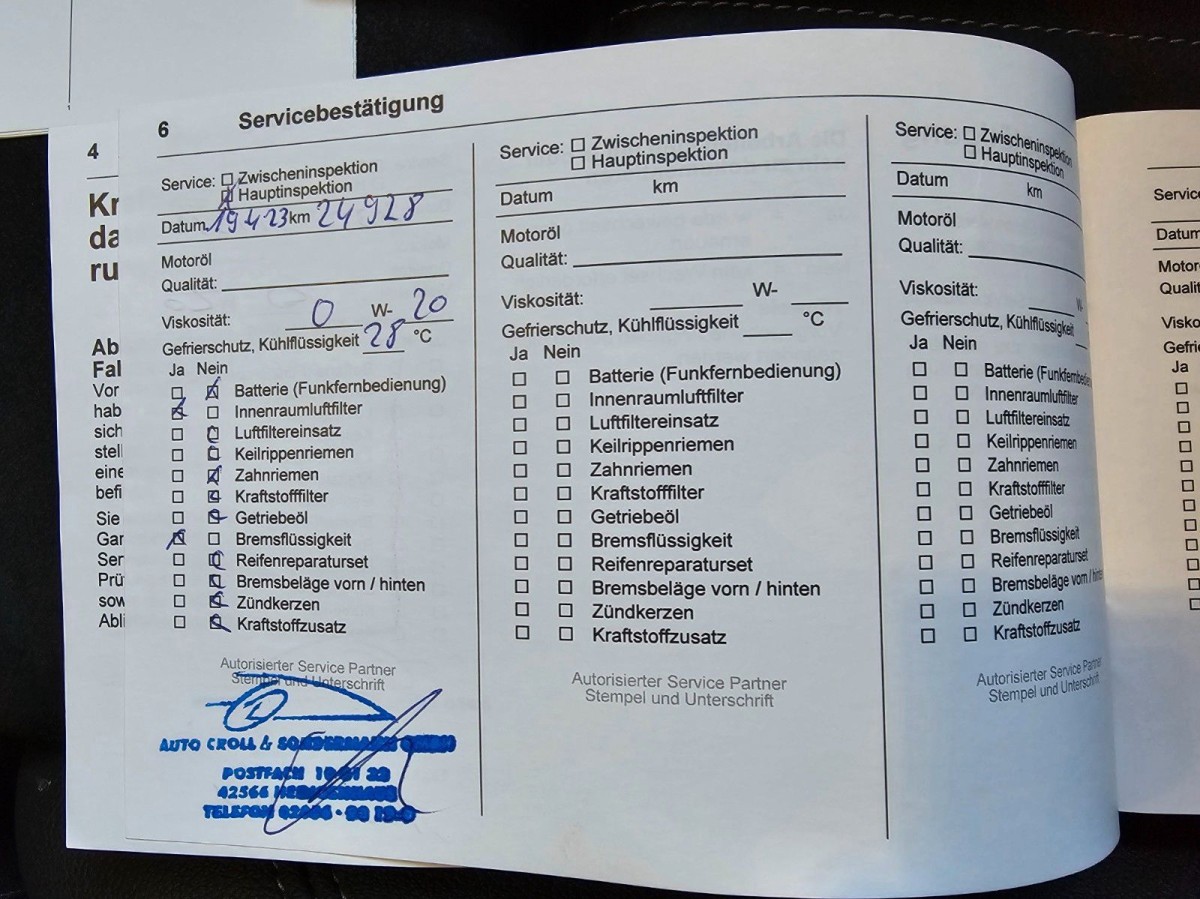 6 Servicebestätigung
Service: Zwischeninspektion
Hauptinspektion
Datum 19 4 23 km 24 928
Motoröl
Qualität:
Viskosität: 0 W- 20
Gefrierschutz, Kühlflüssigkeit 28 °C
Ja Nein
Batterie (Funkfernbedienung)
Innenraumluftfilter
Luftfiltereinsatz
Keilrippenriemen
Zahnriemen
Kraftstofffilter
Getriebeöl
Bremsflüssigkeit
Reifenreparaturset
Bremsbeläge vorn / hinten
Zündkerzen
Kraftstoffzusatz
Autorisierter Service Partner
Stempel und Unterschrift
AUTO CROLL & SONDERMANN GMBH
POSTFACH
42566
TELEFON
Service: Zwischeninspektion
Hauptinspektion
Datum km
Motoröl
Qualität:
Viskosität: W-
Gefrierschutz, Kühlflüssigkeit °C
Ja Nein
Batterie (Funkfernbedienung)
Innenraumluftfilter
Luftfiltereinsatz
Keilrippenriemen
Zahnriemen
Kraftstofffilter
Getriebeöl
Bremsflüssigkeit
Reifenreparaturset
Bremsbeläge vorn / hinten
Zündkerzen
Kraftstoffzusatz
Autorisierter Service Partner
Stempel und Unterschrift
Service: Zwischeninspektion
Hauptinspektion
Datum km
Motoröl
Qualität:
Viskosität: W-
Gefrierschutz, Kühlflüssigkeit
Ja Nein
Batterie (Funkfernbe
Innenraumluftfilter
Luftfiltereinsatz
Keilrippenriemen
Zahnriemen
Kraftstofffilter
Getriebeöl
Bremsflüssigkeit
Reifenreparaturset
Bremsbeläge vorn / hint
Zündkerzen
Kraftstoffzusatz
Autorisierter Service Partn
Stempel und Unterschrift
4
Kr
da
ru
Ab
Fal
Vor
hab
sich
stell
eine
befi
Sie
Gar
Ser
Prü
sow
Abli
Servic
Datum
Motor
Qualit
Visko
Gefri
Ja